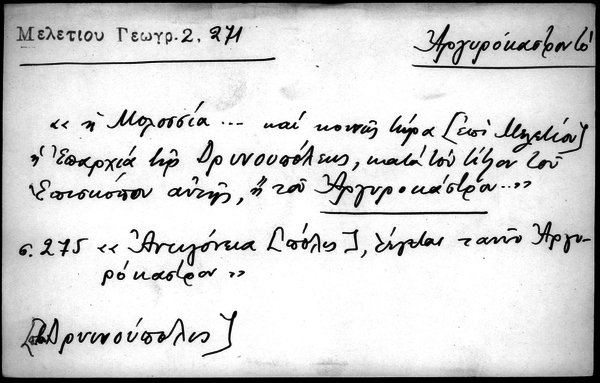 Μελετίου Γεωγρ. 2, 271
Ἀργυρόκαστρον τὸ
« ἡ Μολοσσία ... καὶ κοινῶς τώρα [ἐπὶ Μελετίου]
ἡ Ἐπαρχία τῆς Δρυνουπόλεως, κατὰ τὸν τίτλον τοῦ
Ἐπισκόπου αὐτῆς, ἢ τοῦ Ἀργυροκάστρου... »
σ. 275 « Ἀντιγόνεια [πόλις], λέγεται τανῦν Ἀργυ-
ρόκαστρον »
Δρυινούπολις]